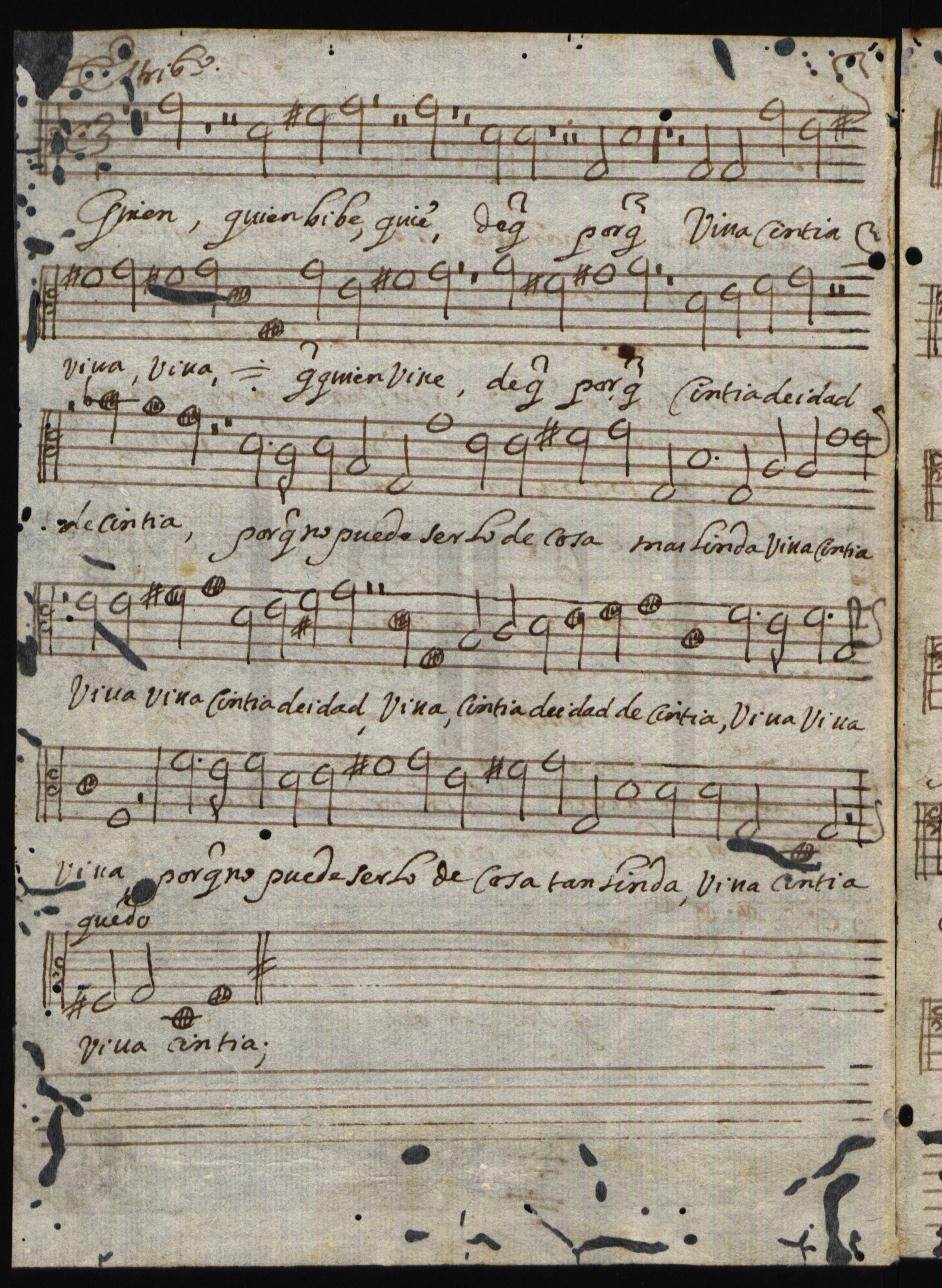 Estribo.
Quien, quien bibe, quiē, deq̃ porq̃ Viua Cintia
viua, viua, q̃ quien Viue, deq̃ porq̃ Cintia deidad
de Cintia, porq̃ no puede serlo de cosa mas linda Viua Cintia
Viua viua Cintia deidad, Viua, Cintia deidad de Cintia, Viua Viua
viua porq̃ no puede serlo de Cosa tan linda, Viua Cintia
quedo
Viua Cintia;